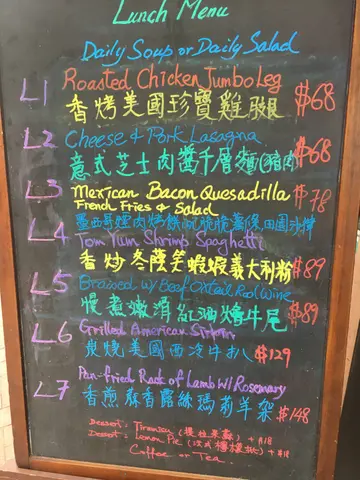 Lunch Menu
Daily Soup or Daily Salad
L1 Roasted Chicken Jumbo Leg
香烤美國珍寶雞腿 $68
L2 Cheese & Pork Lasagna
意式芝士肉醬千層麵(豬肉) $68
L3 Mexican Bacon Quesadilla
French Fries & Salad $78
墨西哥煙肉烤餅 田園沙律
L4 Tom Yum Shrimp Spaghetti
香炒冬蔭 蝦義大利粉 $89
L5 Braised w/ Beef Oxtail Red Wine
慢煮嫩滑紅酒燴牛尾 $89
L6 Grilled American Sirloin
炭燒美國西冷牛扒 $129
L7 Pan-fried Rack of Lamb W/ Rosemary
香煎蘇香露絲瑪莉羊架 $148
Dessert: Tiramisu + $18
Dessert: Lemon Pie + $18
Coffee or Tea